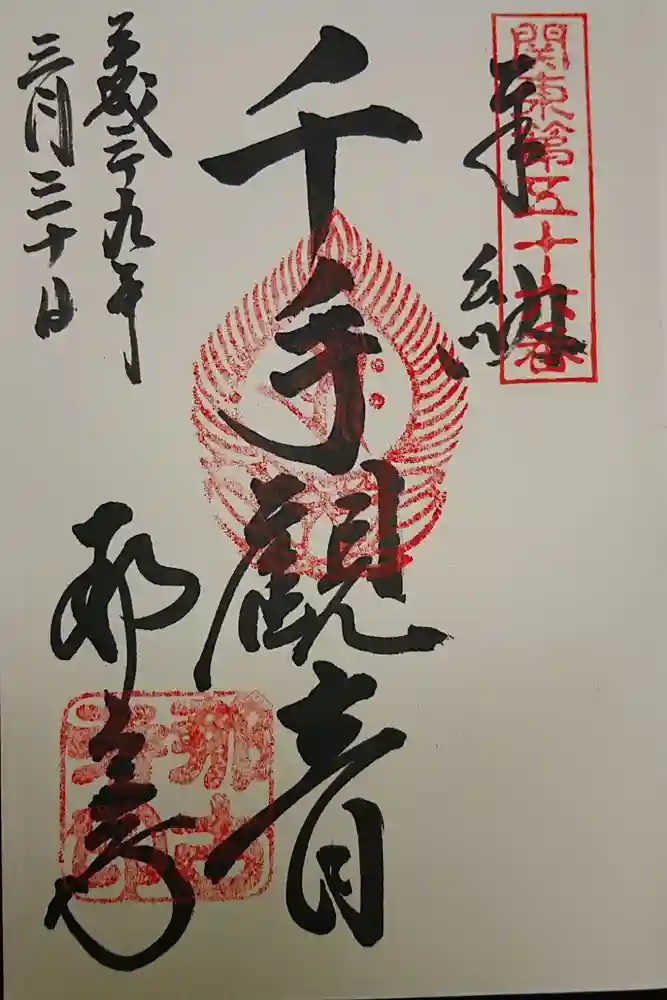 關東第五十六番
奉納
千手觀音
平成二十九年
三月三十日
那古寺
那古
寺印